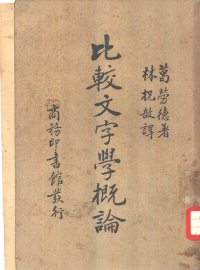 葛勞德著
林祝敔譯
比較文字學概論
商務印書館發行